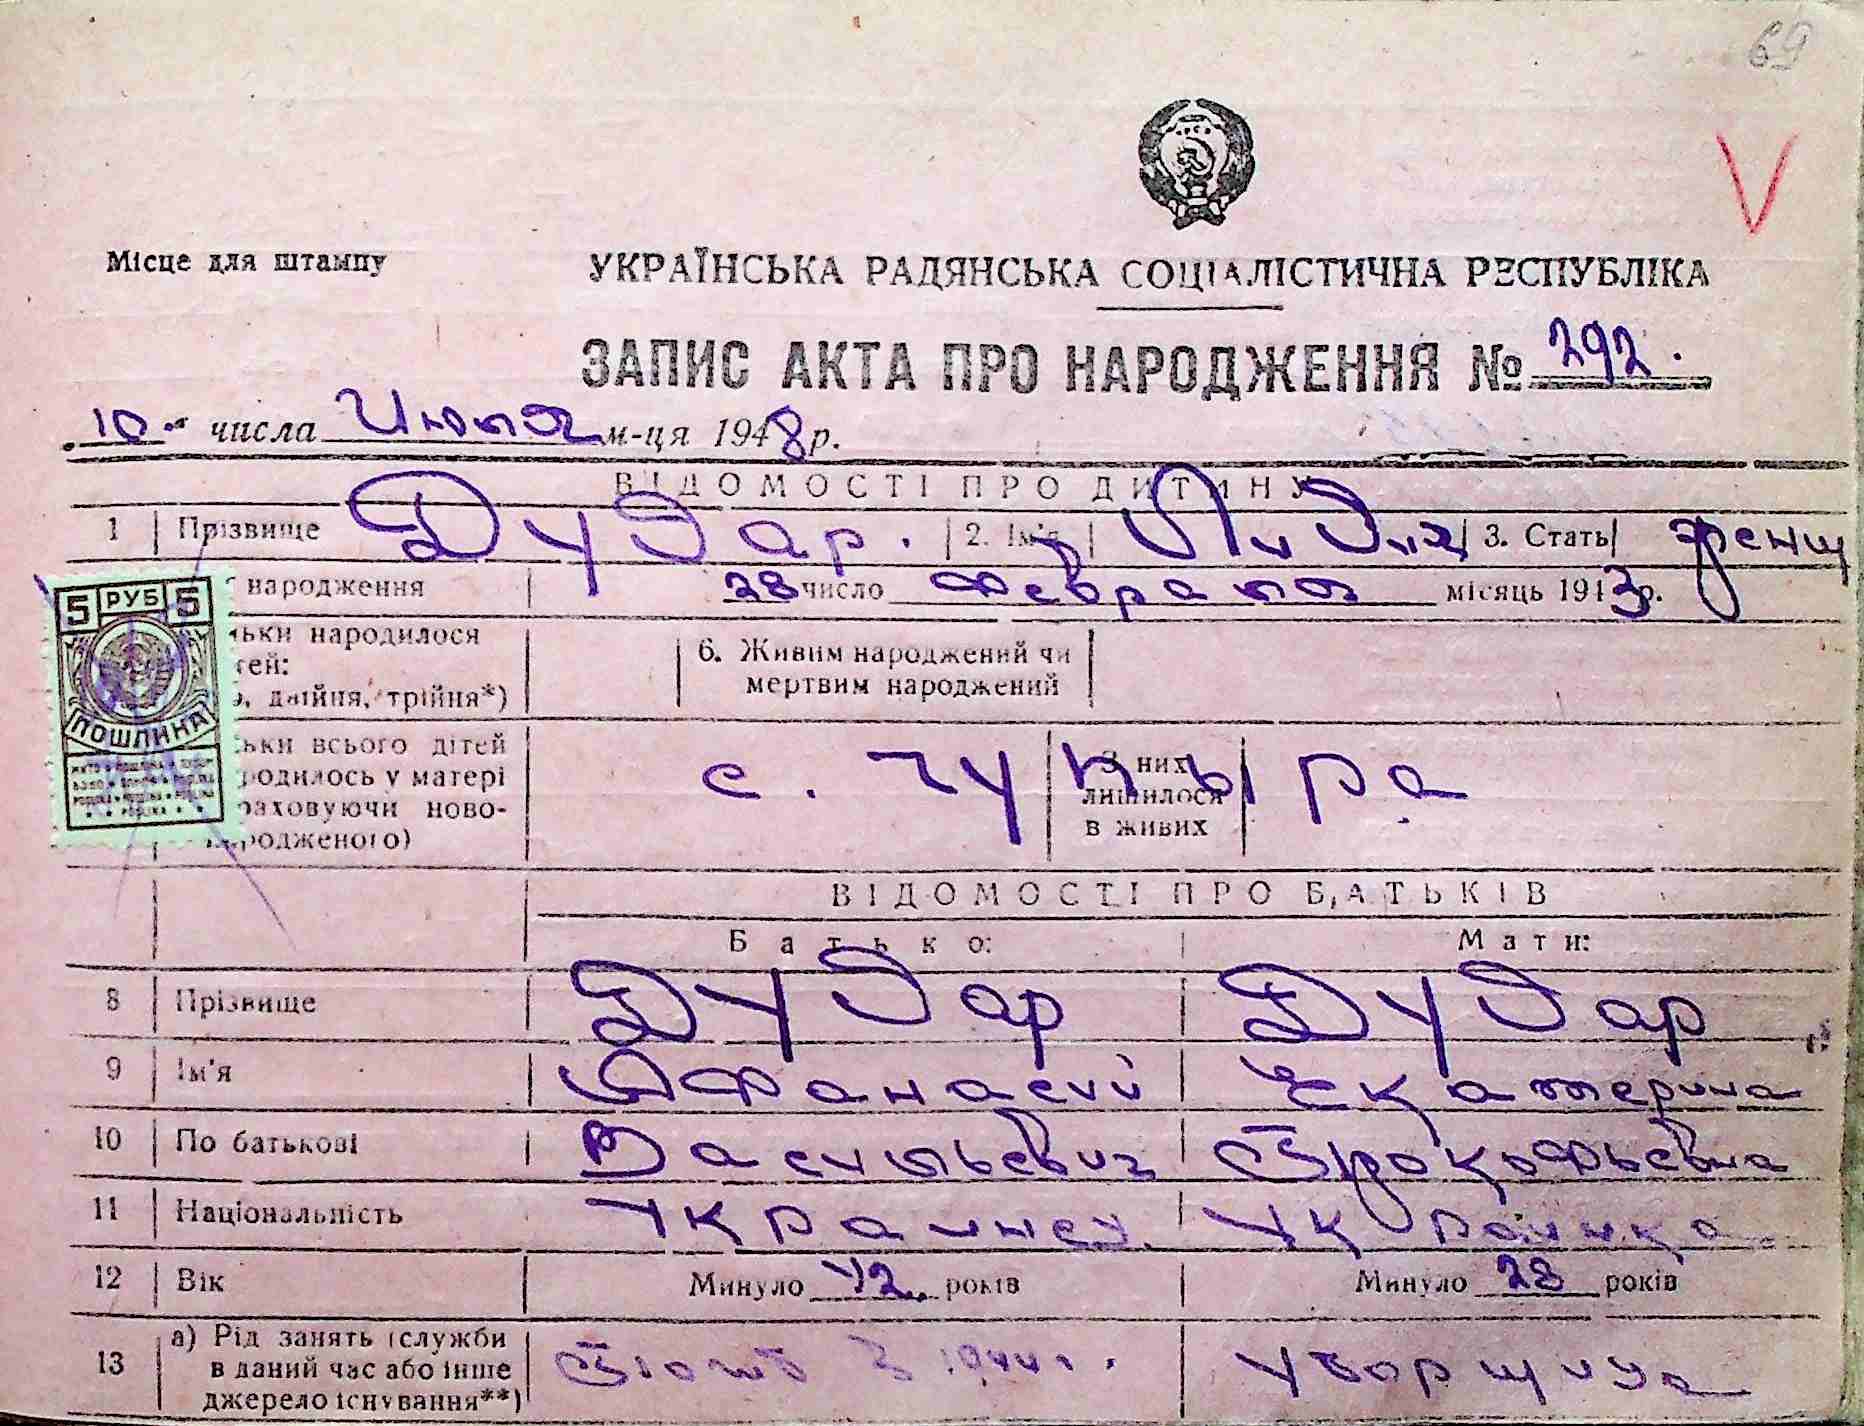 69
V
Місце для штампу
УКРАЇНСЬКА РАДЯНСЬКА СОЦІАЛІСТИЧНА РЕСПУБЛІКА
ЗАПИС АКТА ПРО НАРОДЖЕННЯ № 292.
10 числа Июля м-ця 1948 р.
ВІДОМОСТІ ПРО ДИТИНУ
1 Прізвище Дудар. 2. Ім'я Лидия 3. Стать женщ
народження 28 число Февраля місяць 1943 р.
ньки народилося
тей:
о, двійня, трійня*)
6. Живим народжений чи
мертвим народжений
5 РУБ 5
ПОШЛИНА
ьки всього дітей
родилось у матері
раховуючи ново-
народженого)
с. Чупыра
З них
лишилося
в живих
ВІДОМОСТІ ПРО БАТЬКІВ
Батько: Мати:
8 Прізвище Дудар Дудар
9 Ім'я Афанасий Екатерина
10 По батькові Васильевич Прокофьевна
11 Національність Украинец Украинка
12 Вік Минуло 42 років Минуло 28 років
13 а) Рід занять (служби
в даний час або інше
джерело існування**)
1944 г. уборщица